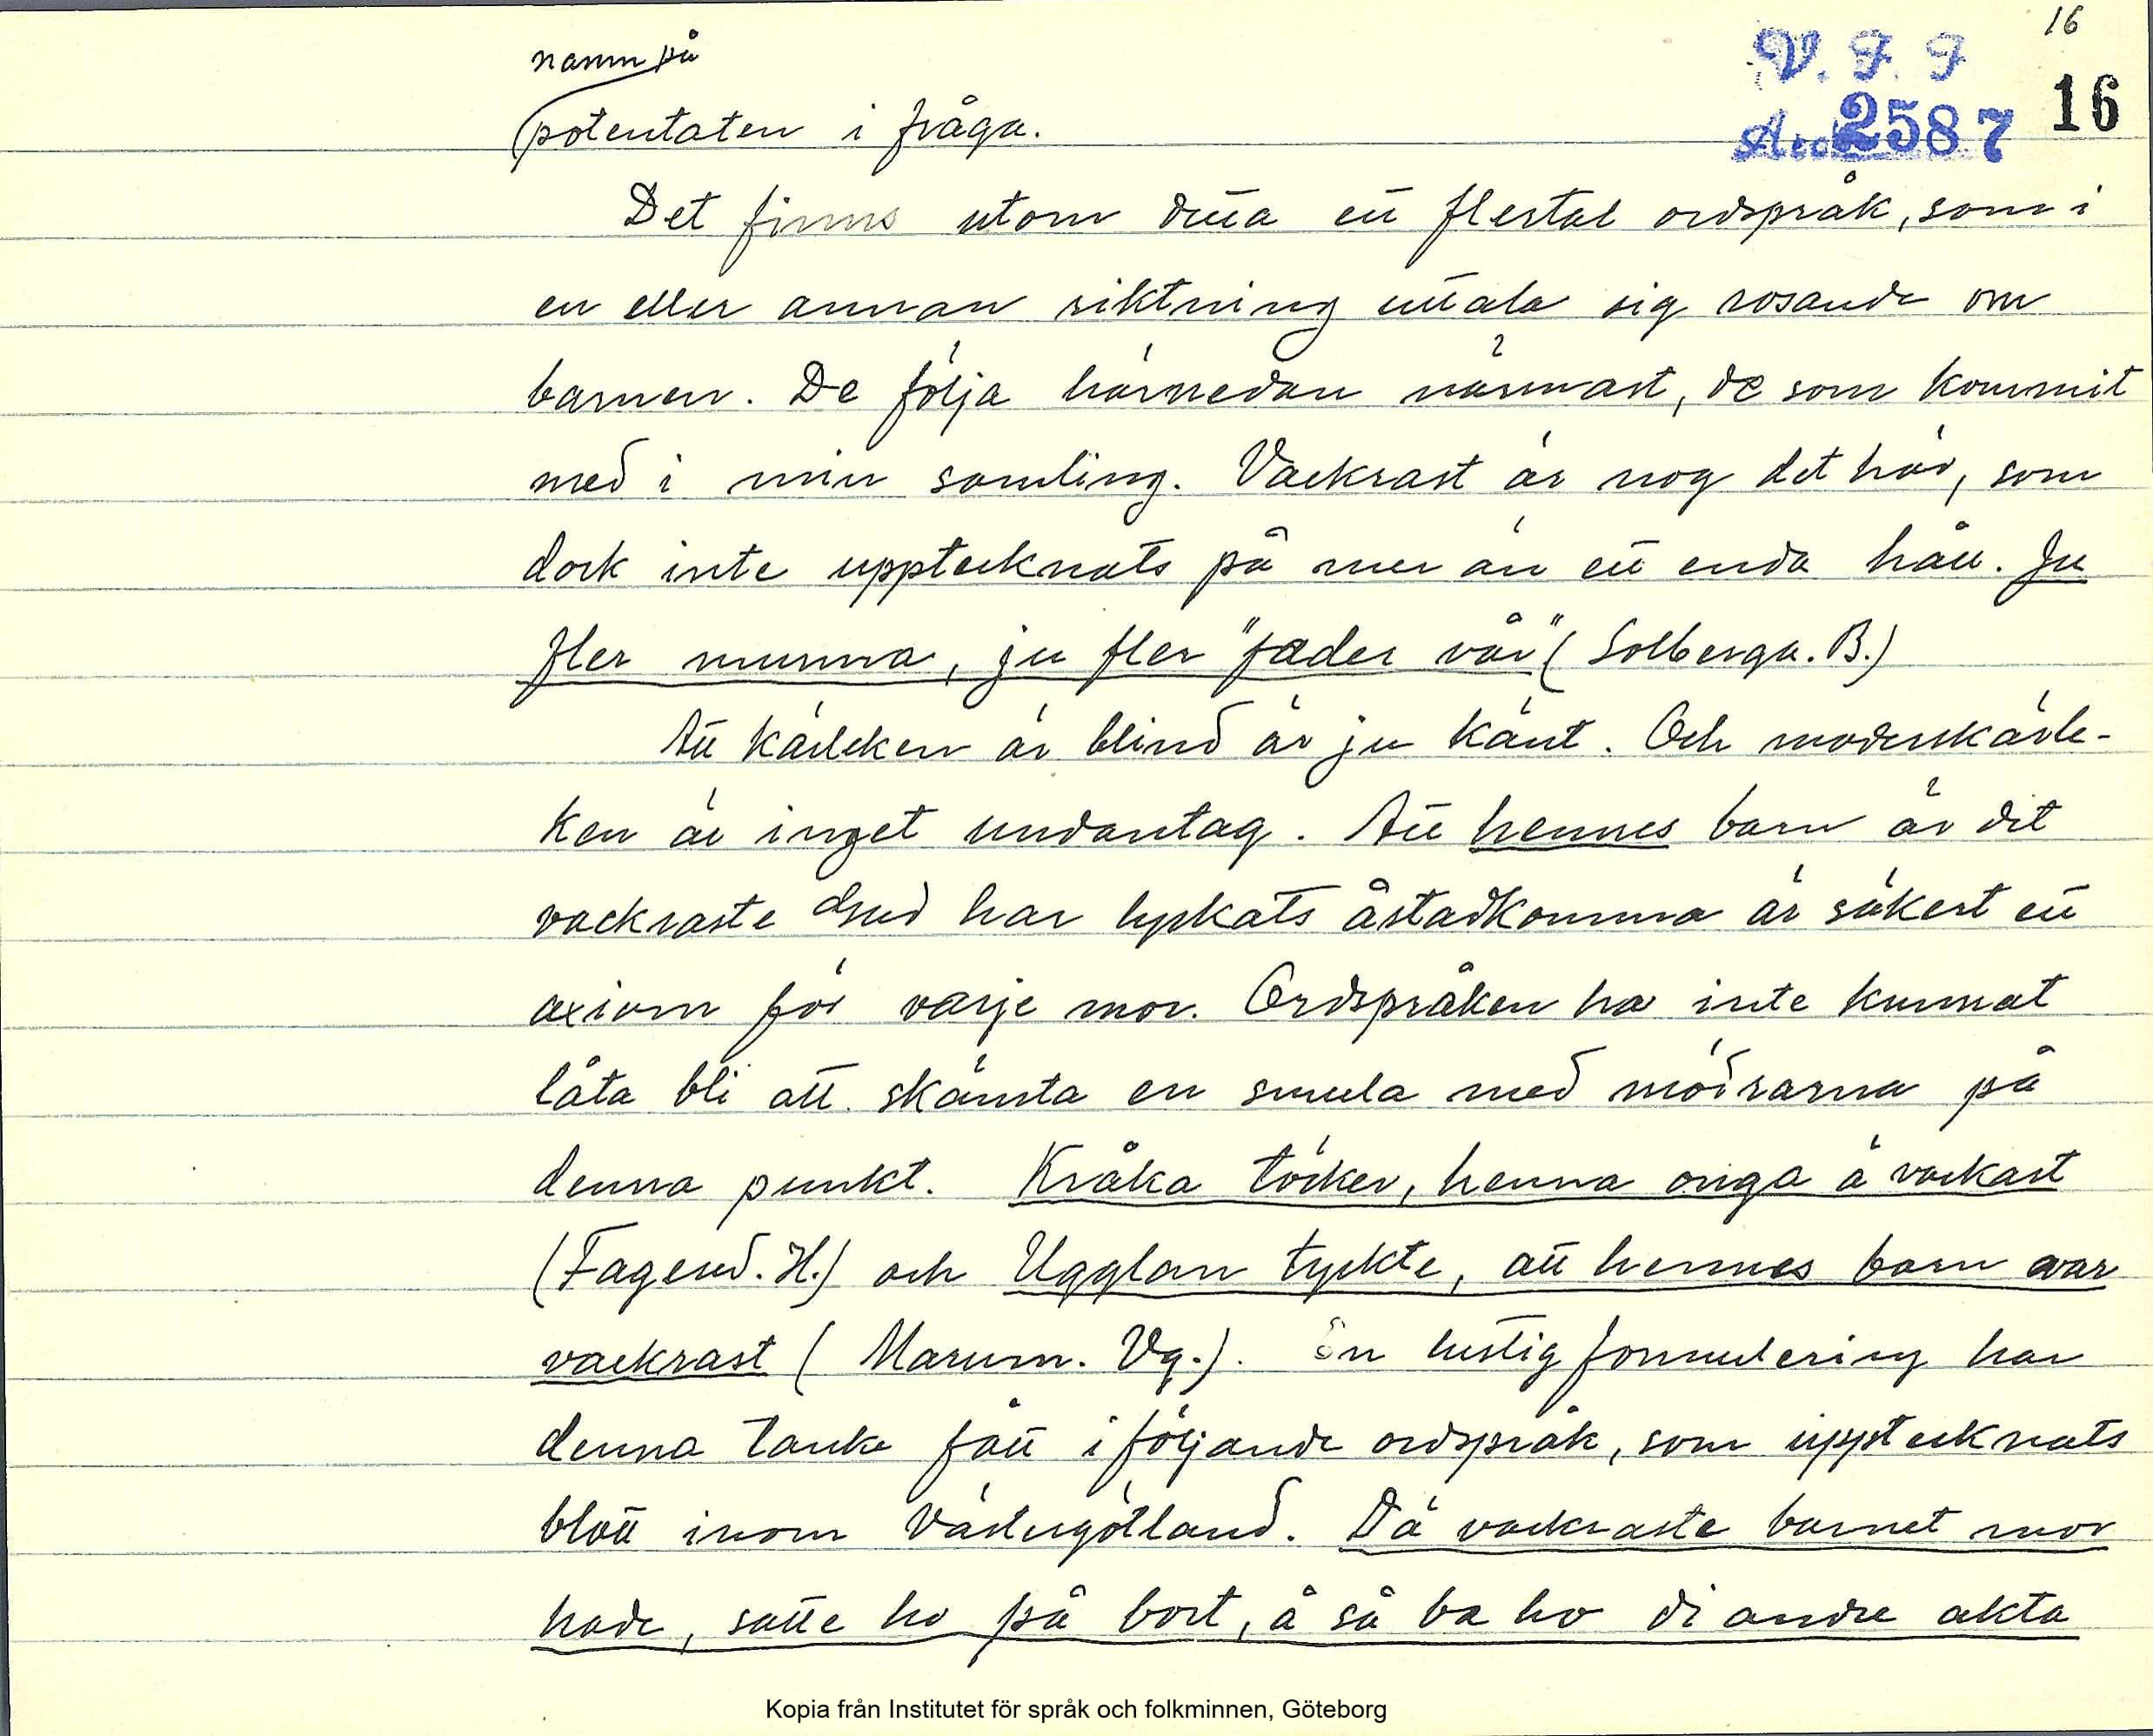 16
V. F. F
namn på
16
potentaten i fråga.
Ark 2587
Det finns utom detta ett flertal ordspråk, som i
en eller annan riktning uttala sig rosande om
barnen. De följa härnedan närmast, de som kommit
med i min samling. Vackrast är nog det här, som
dock inte upptecknats på mer än ett enda håll. Ju
fler munna, ju fler "fader vår" (Solberga. B.)
Att kärleken är blind är ju känt. Och moderskärle-
ken är inget undantag. Att hennes barn är det
vackraste Gud har lyckats åstadkomma är säkert ett
axiom för varje mor. Ordspråken ha inte kunnat
låta bli att skämta en smula med mödrarna på
denna punkt. Kråka töcker, henna onga ä vackast
(Fagered. H.) och Ugglan tyckte, att hennes barn var
vackrast (Marum. Vg.). En lustig formulering har
denna tanke fått i följande ordspråk, som upptecknats
blott inom Västergötland. Dä vackraste barnet mor
hade, satte ho på bort, å så ba ho di andre akta
Kopia från Institutet för språk och folkminnen, Göteborg